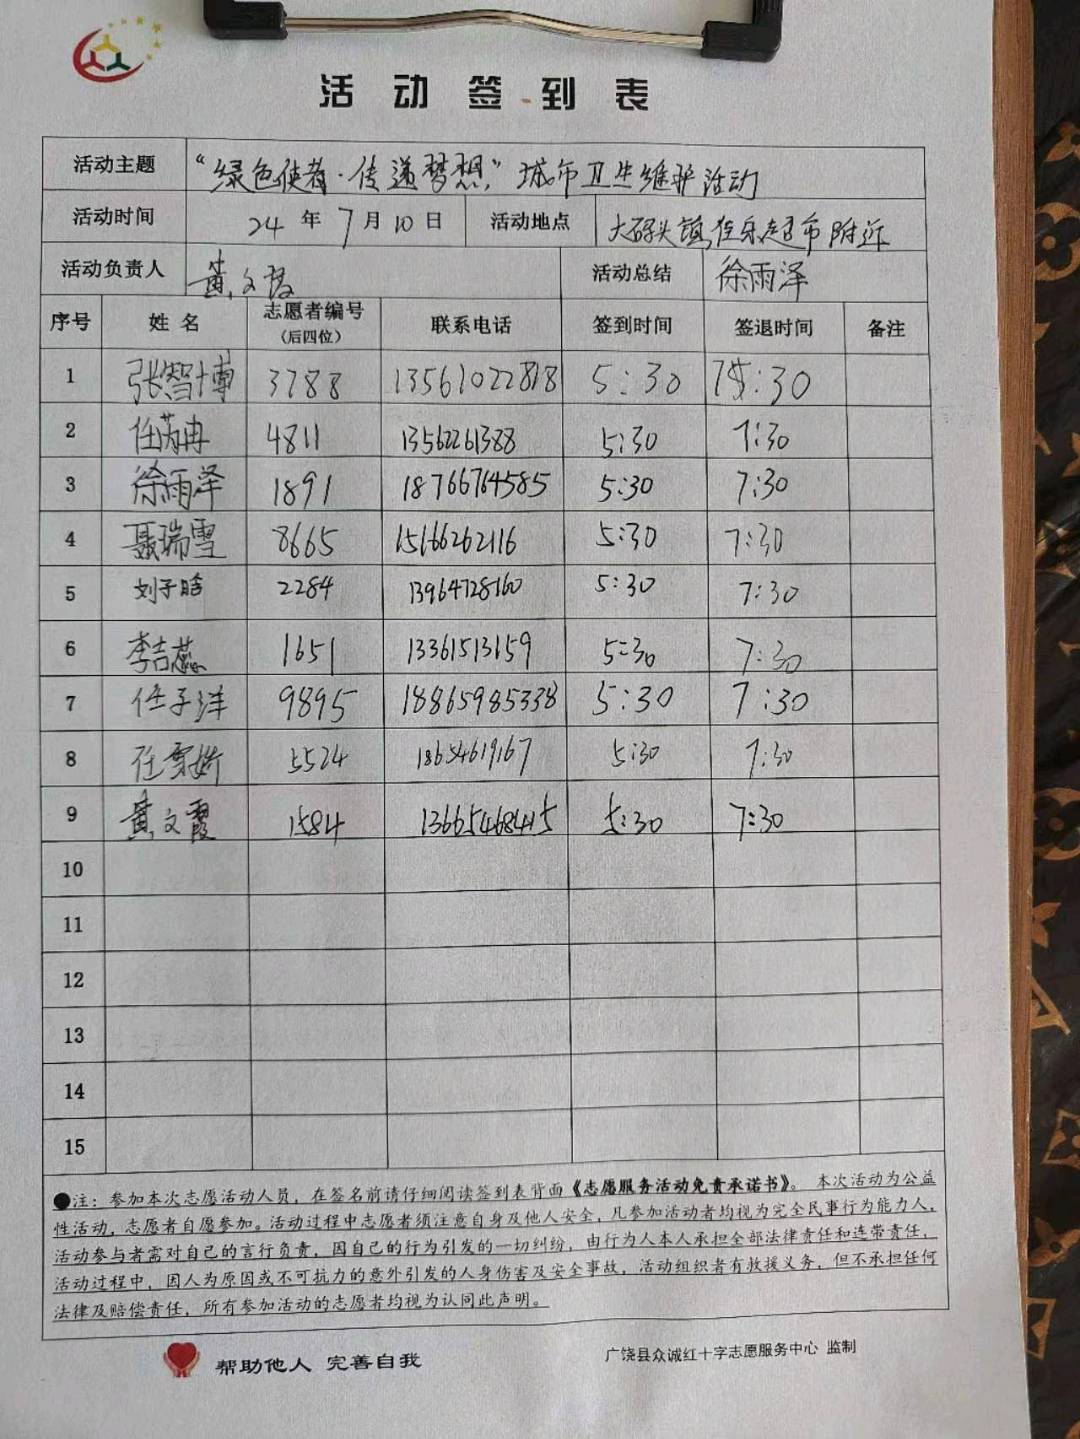 活动签到表
活动主题 “绿色使者·传递梦想”城市卫生维护活动
活动时间 24年7月10日 活动地点 大码头镇佳乐超市附近
活动负责人 黄文霞 活动总结 徐雨泽
序号 姓名 志愿者编号（后四位） 联系电话 签到时间 签退时间 备注
1 张智博 3788 13561022818 5:30 7:30
2 任芮冉 4811 13562261388 5:30 7:30
3 徐雨泽 1891 18766764585 5:30 7:30
4 聂瑞雪 8665 15166262116 5:30 7:30
5 刘子晗 2284 13964728160 5:30 7:30
6 李吉蕊 1651 13361513159 5:30 7:30
7 任子洋 9895 18865985338 5:30 7:30
8 任 5524 18654619167 5:30 7:30
9 黄文霞 1584 13665468415 5:30 7:30
10
11
12
13
14
15
●注：参加本次志愿活动人员，在签名前请仔细阅读签到表背面《志愿服务活动免责承诺书》。本次活动为公益
性活动，志愿者自愿参加。活动过程中志愿者须注意自身及他人安全，凡参加活动者均视为完全民事行为能力人，
活动参与者需对自己的言行负责，因自己的行为引发的一切纠纷，由行为人本人承担全部法律责任和连带责任，
活动过程中，因人为原因或不可抗力的意外引发的人身伤害及安全事故，活动组织者有救援义务，但不承担任何
法律及赔偿责任，所有参加活动的志愿者均视为认同此声明。
帮助他人 完善自我
广饶县众诚红十字志愿服务中心 监制